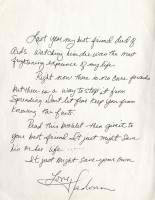 Last year my best friend died of
Aids. Watching him die was the most
frightening experience of my life.
Right now there is no cure
But there is a way to stop it from
Spreading. Don't let fear keep you from
Knowing the facts.
Read this booklet - then give it to
your best friend. It just might save
his or her life
It just might save your own
Love,
Madonna